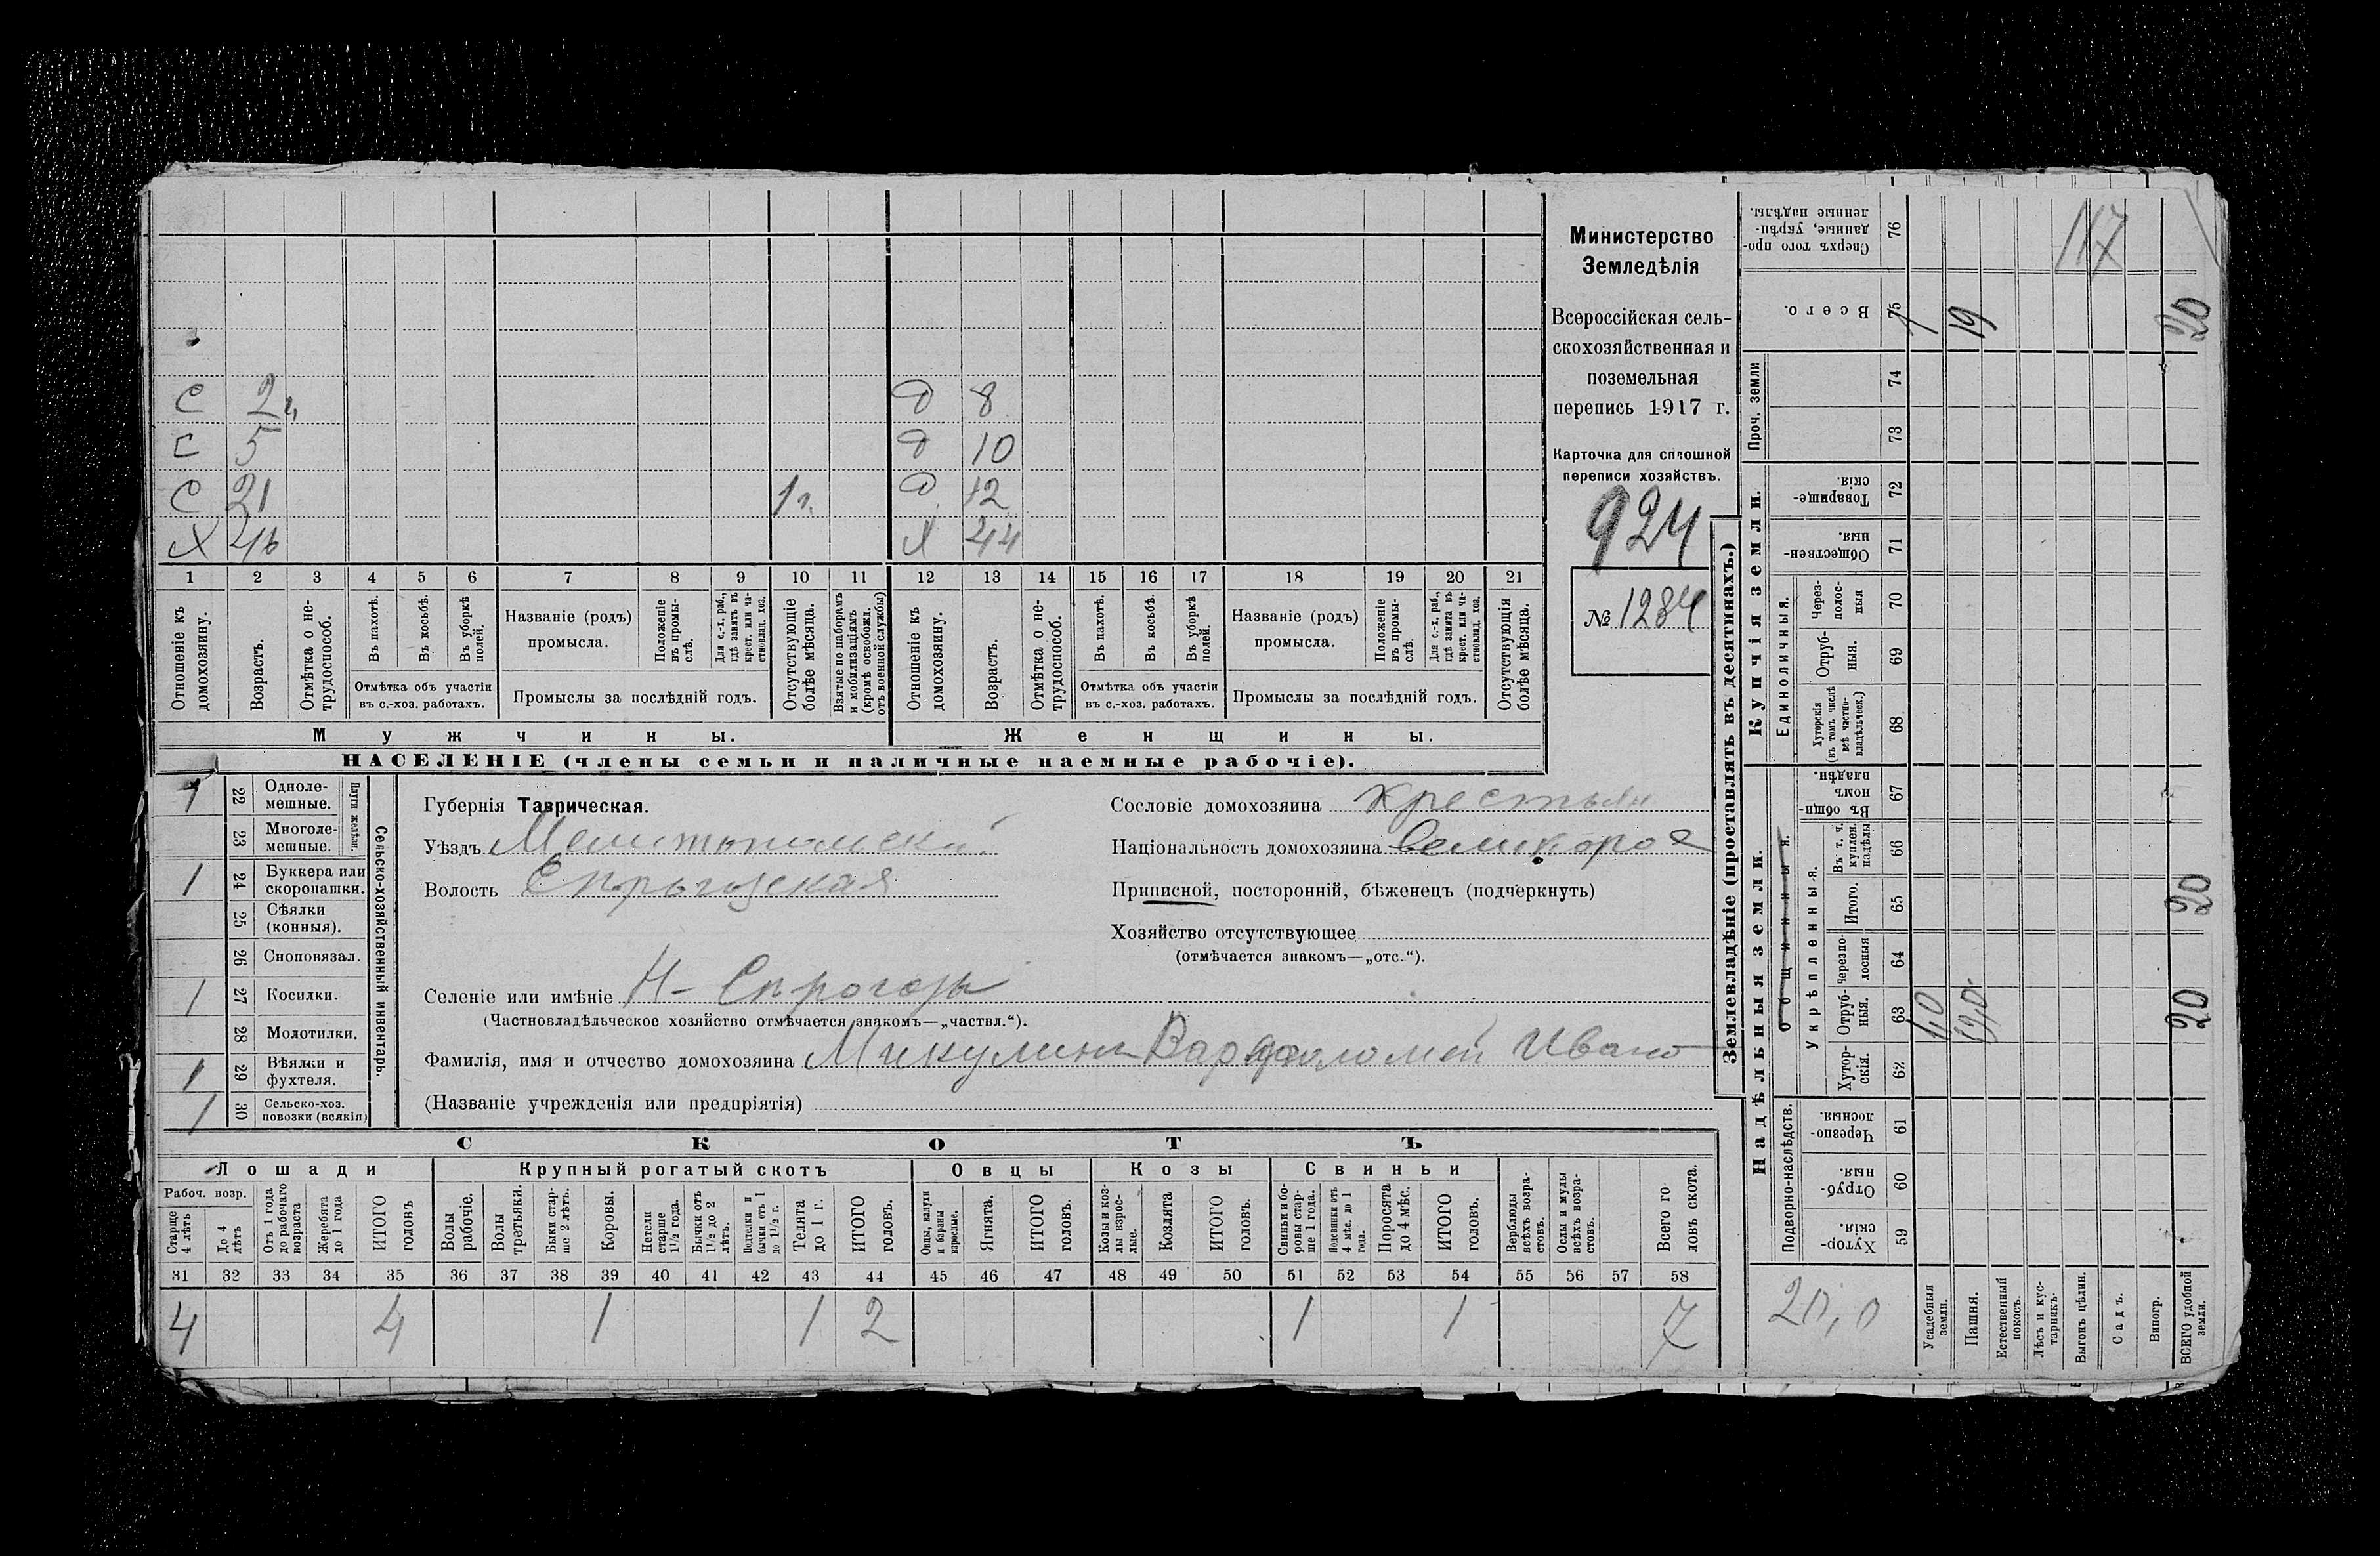 С 2 г. Д 8
С 5 Д 10
С 21 1 г. Д 12
Х 46 Х 44
1 2 3 4 5 6 7 8 9 10 11 12 13 14 15 16 17 18 19 20 21
Отношеніе къ домохозяину.
Возрастъ.
Отмѣтка о не-трудоспособ.
Въ пахотѣ.
Въ косьбѣ.
Въ уборкѣ полей.
Отмѣтка объ участіи
въ с.-хоз. работахъ.
Названіе (родъ)
промысла.
Положеніе въ промы-слѣ.
Для с.-х. раб., гдѣ занятъ въ крест. или ча-стновлад. хоз.
Промыслы за послѣдній годъ.
Отсутствующіе болѣе мѣсяца.
Взятые по наборамъ и мобилизаціямъ (кромѣ освобожд. отъ военной службы)
Отношеніе къ домохозяину.
Возрастъ.
Отмѣтка о не-трудоспособ.
Въ пахотѣ.
Въ косьбѣ.
Въ уборкѣ полей.
Отмѣтка объ участіи
въ с.-хоз. работахъ.
Названіе (родъ)
промысла.
Положеніе въ промы-слѣ.
Для с.-х. раб., гдѣ занята въ крест. или ча-стновлад. хоз.
Промыслы за послѣдній годъ.
Отсутствующія болѣе мѣсяца.
Мужчины. Женщины.
НАСЕЛЕНІЕ (члены семьи и наличные наемные рабочіе).
Министерство
Земледѣлія
Всероссійская сель-
скохозяйственная и
поземельная
перепись 1917 г.
Карточка для сплошной
переписи хозяйствъ.
924
№ 1284
1 22 Одноле-мешные.
23 Многоле-мешные.
Плуги желѣзн.
1 24 Буккера или скоропашки.
25 Сѣялки (конныя).
26 Сноповязал.
1 27 Косилки.
28 Молотилки.
1 29 Вѣялки и фухтеля.
1 30 Сельско-хоз. повозки (всякія)
Сельско-хозяйственный инвентарь.
Губернія Таврическая.
Уѣздъ Мелитопольскій
Волость
Селеніе или имѣніе Н-
(Частновладѣльческое хозяйство отмѣчается знакомъ—„частвл.“).
Фамилія, имя и отчество домохозяина Микулинъ Варфоломей Ивано
(Названіе учрежденія или предпріятія)
Сословіе домохозяина крестьян
Національность домохозяина великорос
Приписной, посторонній, бѣженецъ (подчеркнуть)
Хозяйство отсутствующее
(отмѣчается знакомъ—„отс.“).
СКОТЪ
Лошади Крупный рогатый скотъ Овцы Козы Свиньи
Рабоч. возр.
Старше 4 лѣтъ
До 4 лѣтъ
Отъ 1 года до рабочаго возраста
Жеребята до 1 года
ИТОГО головъ
Волы рабочіе.
Волы третьяки.
Быки стар-ше 2 лѣтъ.
Коровы.
Нетели старше 1½ года.
Бычки отъ 1½ до 2 лѣтъ.
Подтелки и бычки отъ 1 до 1½ г.
Телята до 1 г.
ИТОГО головъ.
Овцы, валухи и бараны взрослые.
Ягнята.
ИТОГО головъ.
Козы и коз-лы взрос-лые.
Козлята
ИТОГО головъ.
Свиньи и бо-ровы стар-ше 1 года.
Подсвинки отъ 4 мѣс. до 1 года.
Поросята до 4 мѣс.
ИТОГО головъ.
Верблюды всѣхъ возра-стовъ.
Ослы и мулы всѣхъ возра-стовъ.
Всего го-ловъ скота.
31 32 33 34 35 36 37 38 39 40 41 42 43 44 45 46 47 48 49 50 51 52 53 54 55 56 57 58
4 4 1 1 2 1 1 7
Землевладѣніе (проставлять въ десятинахъ.)
Купчія земли.
Надѣльныя земли.
Сверхъ того про-данные, укрѣп-ленные надѣлы. 76 117
Всего. 75 1 19 20
Проч. земли 74 73
Товарище-скія. 72
Обществен-ныя. 71
Единоличныя.
Через-полос-ныя 70
Отруб-ныя. 69
Хуторскія (въ томъ числѣ всѣ частно-владѣльческ.) 68
Общинныя.
Въ общи-номъ владѣн. 67
Укрѣпленныя.
Въ т. ч. куплен. надѣлы 66
Итого. 65 20
Черезпо-лосныя 64
Отруб-ныя. 63 1,0 19,0 20
Хутор-скія. 62
Подворно-наслѣдств.
Черезпо-лосныя. 61
Отруб-ныя. 60
Хутор-скія. 59
20,0
Усадебныя земли.
Пашня.
Естественный покосъ.
Лѣсъ и кус-тарникъ.
Выгонъ цѣлин.
Садъ.
Виногр.
ВСЕГО удобной земли.